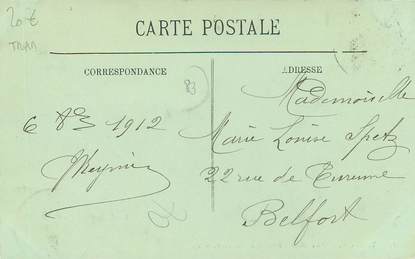 20 €
TRAM
CARTE POSTALE
CORRESPONDANCE
ADRESSE
83
6 Xbre 1912
Mademoiselle
Marie Louise Spetz
22 rue de Turenne
Belfort